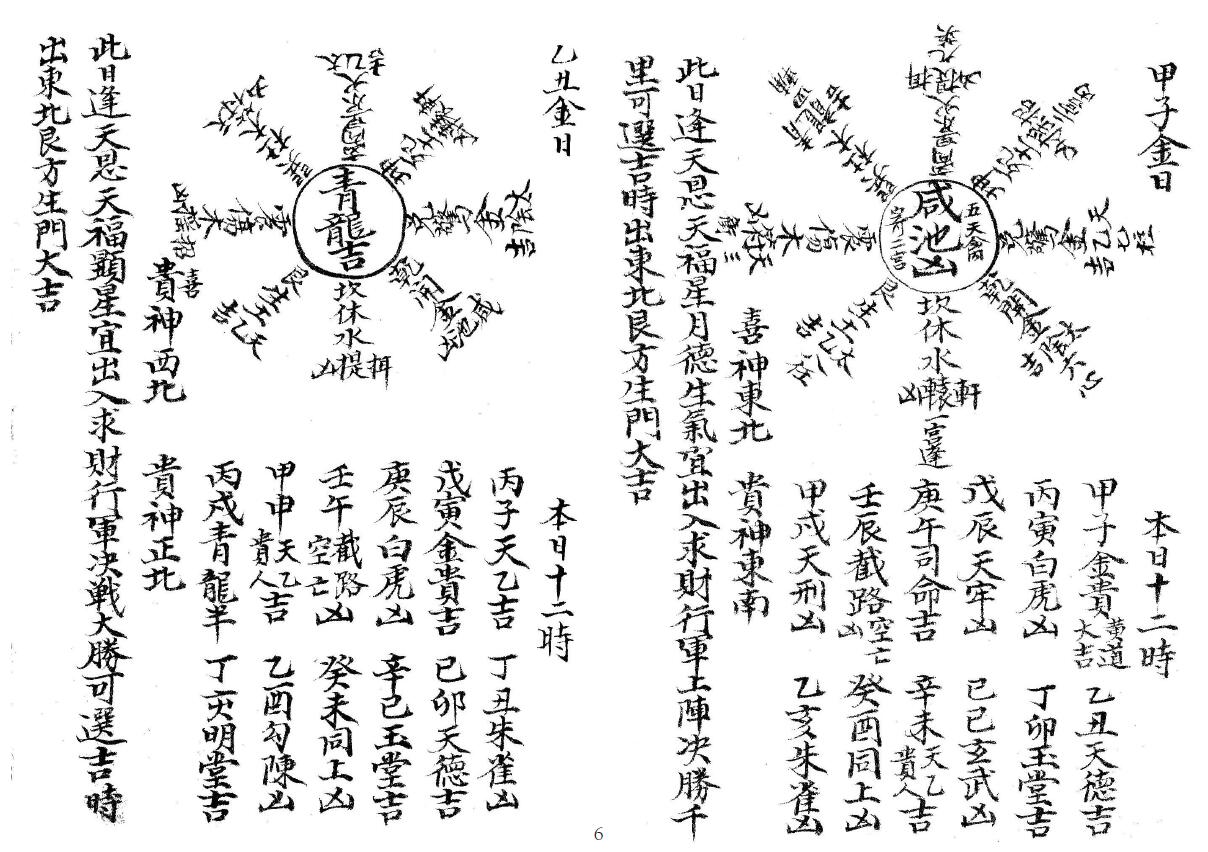 甲子金日
咸池凶
五天禽
寄二宮
坎休水軒轅凶
一宮逢
乾開金太陰吉六心
兌驚金天乙吉七柱
離景火
艮生土太乙吉
震傷木
三
喜神東北 貴神東南
本日十二時
甲子金貴黃道大吉 乙丑天德吉
丙寅白虎凶 丁卯玉堂吉
戊辰天牢凶 己巳玄武凶
庚午司命吉 辛未天乙貴人吉
壬辰截路空亡凶 癸酉同上凶
甲戌天刑凶 乙亥朱雀凶
此日逢天恩天福星月德生氣宜出入求財行軍上陣决勝千
里可選吉時出東北艮方生門大吉
乙丑金日
青龍吉
坎休水
凶提揖
乾開金咸池凶
兌驚金太陰吉
艮生土天乙吉
震傷木
喜貴神西北 貴神正北
本日十二時
丙子天乙吉 丁丑朱雀凶
戊寅金貴吉 己卯天德吉
庚辰白虎凶 辛巳玉堂吉
壬午截路空亡凶 癸未同上凶
甲申天乙貴人吉 乙酉勾陳凶
丙戌青龍半 丁亥明堂吉
此日逢天恩天福顯星宜出入求財行軍决戰大勝可選吉時
出東北艮方生門大吉
6